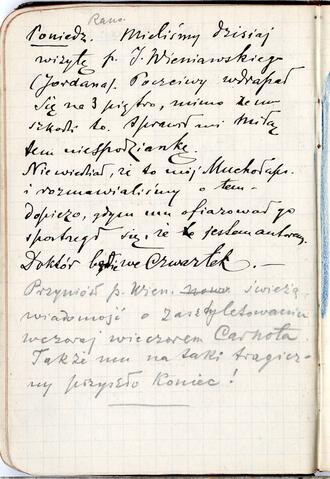 Rano.
Poniedz. Mieliśmy dzisiaj
wizytę p. J. Wieniawskiego
(Jordana). Poczciwy wdrapał
się na 3 piętro, mimo że mu
szkodzi to. Sprawił mi miłą
tem niespodziankę.
Nie wiedział, że to mój Muchołap.
i rozmawialiśmy o tem-
dopiero, gdym mu ofiarował go
spostrzegł się, że jestem autorem.
Doktór będzie we Czwartek. —
Przyniósł p. Wien. nowe świeżą
wiadomość o zasztyletowaniu
wczoraj wieczorem Carnota.
Także mu na taki tragicz-
ny przyszło koniec!